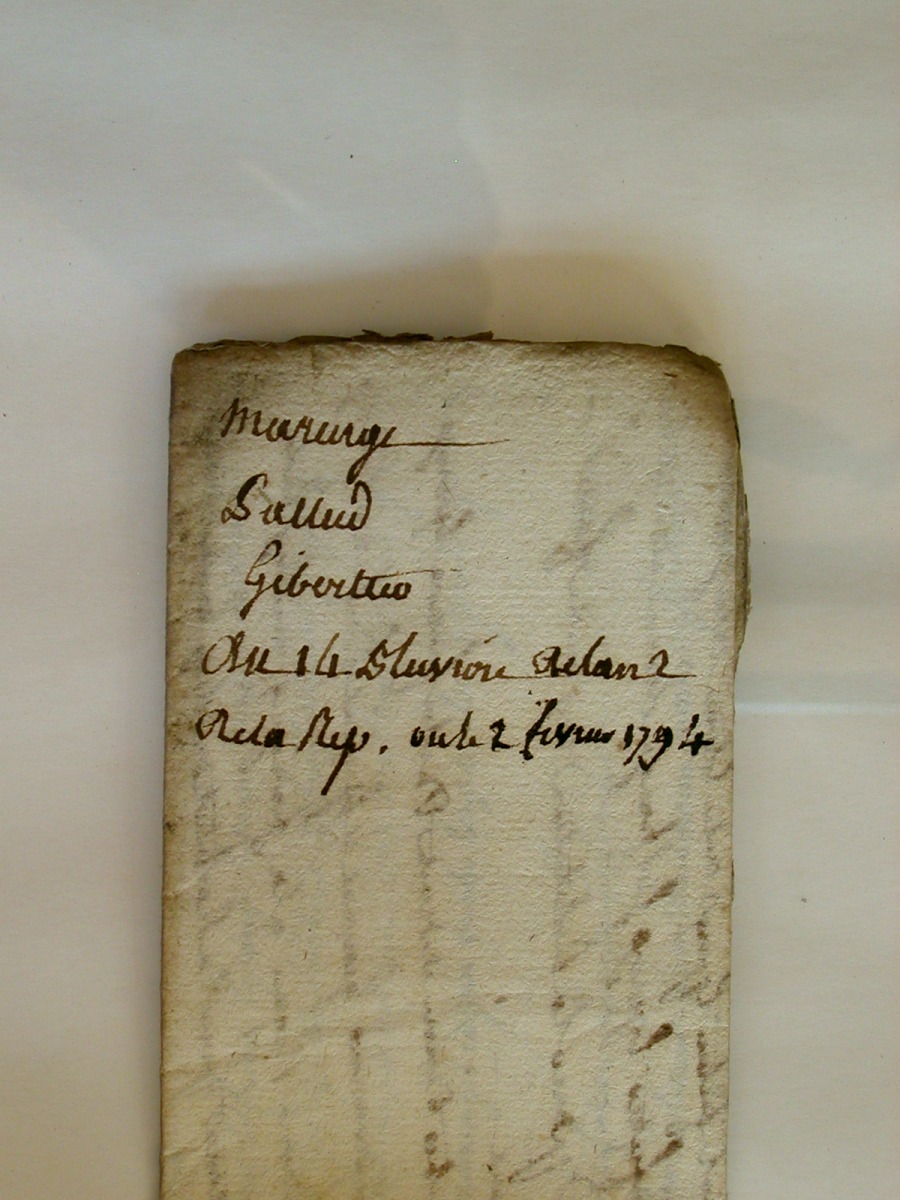 Mariage
Pallud
Giberteo
Du 14 Pluviose de lan 2
de la Rep. ou le 2 fevrier 1794